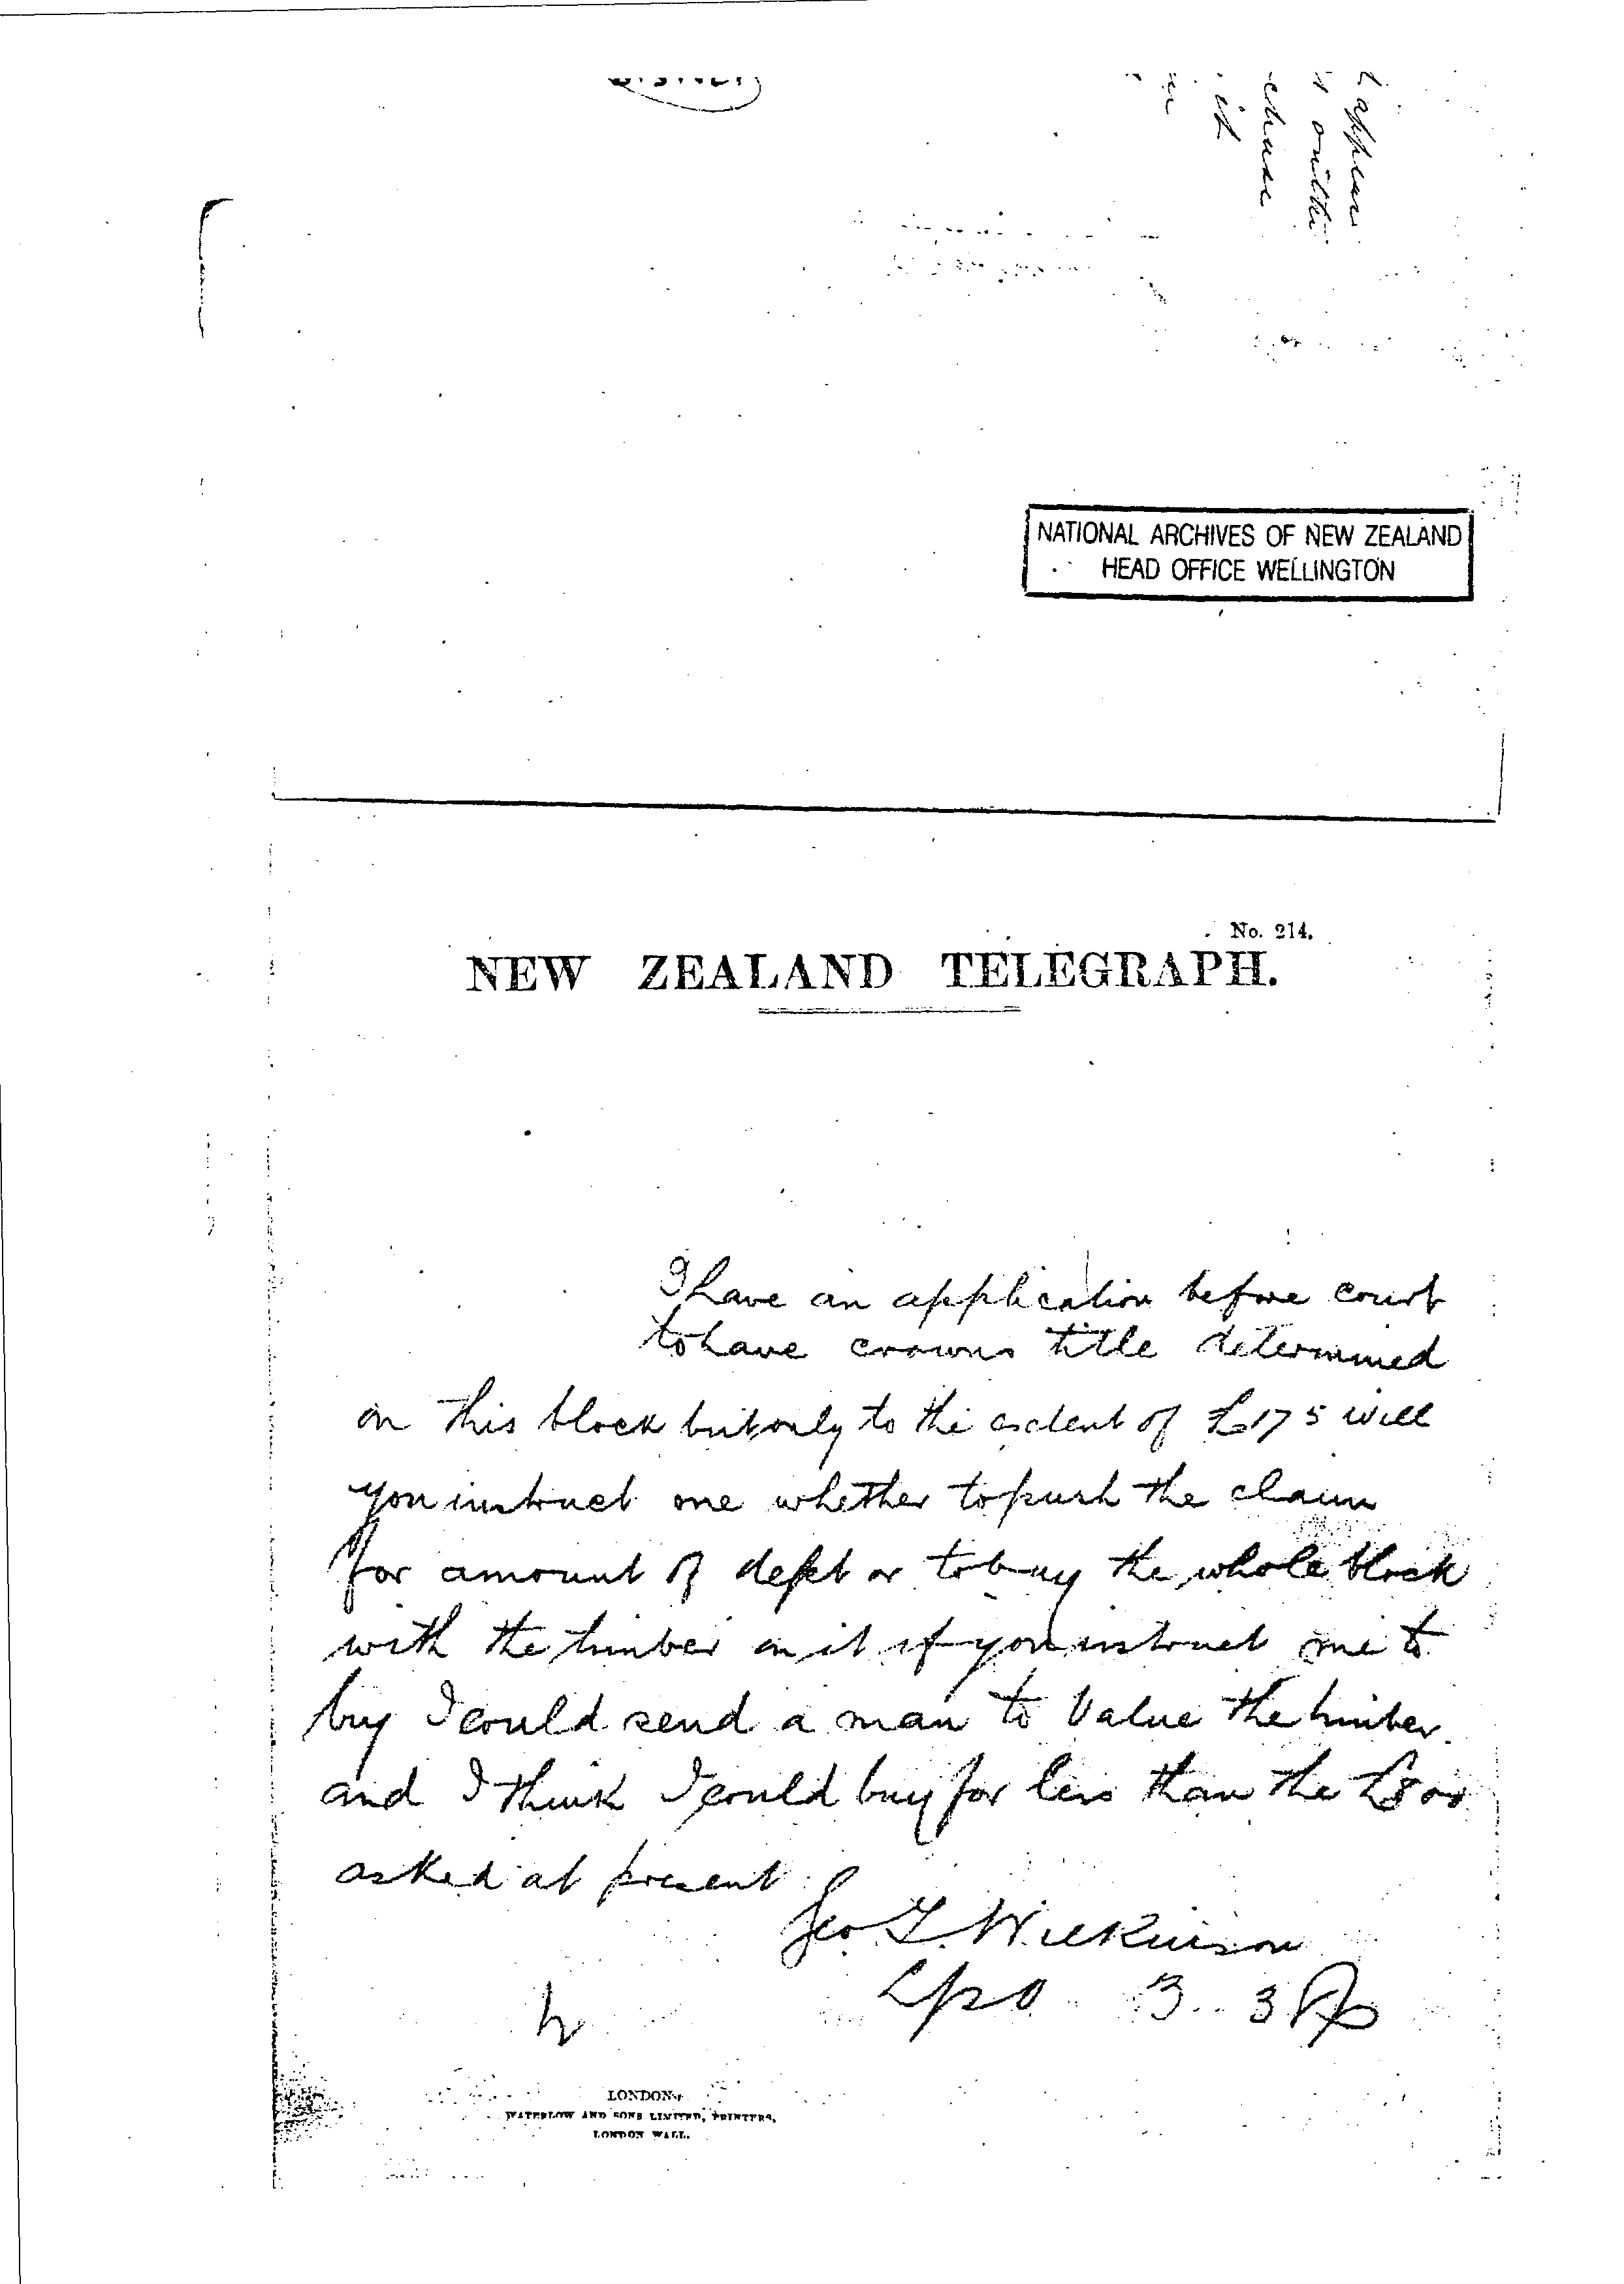 appear
outhi
chase
it
NATIONAL ARCHIVES OF NEW ZEALAND
HEAD OFFICE WELLINGTON
No. 214.
NEW ZEALAND TELEGRAPH.
I have an application before court
to have crowns title determined
on this block but only to the extent of £175 will
you instruct me whether to push the claim
for amount of debt or to buy the whole block
with the timber on it if you instruct me to
buy I could send a man to value the timber
and I think I could buy for less than the £800
asked at present
Geo T. Wilkinson
Lpo 3.
LONDON:
WATERLOW AND SONS LIMITED, PRINTERS,
LONDON WALL.